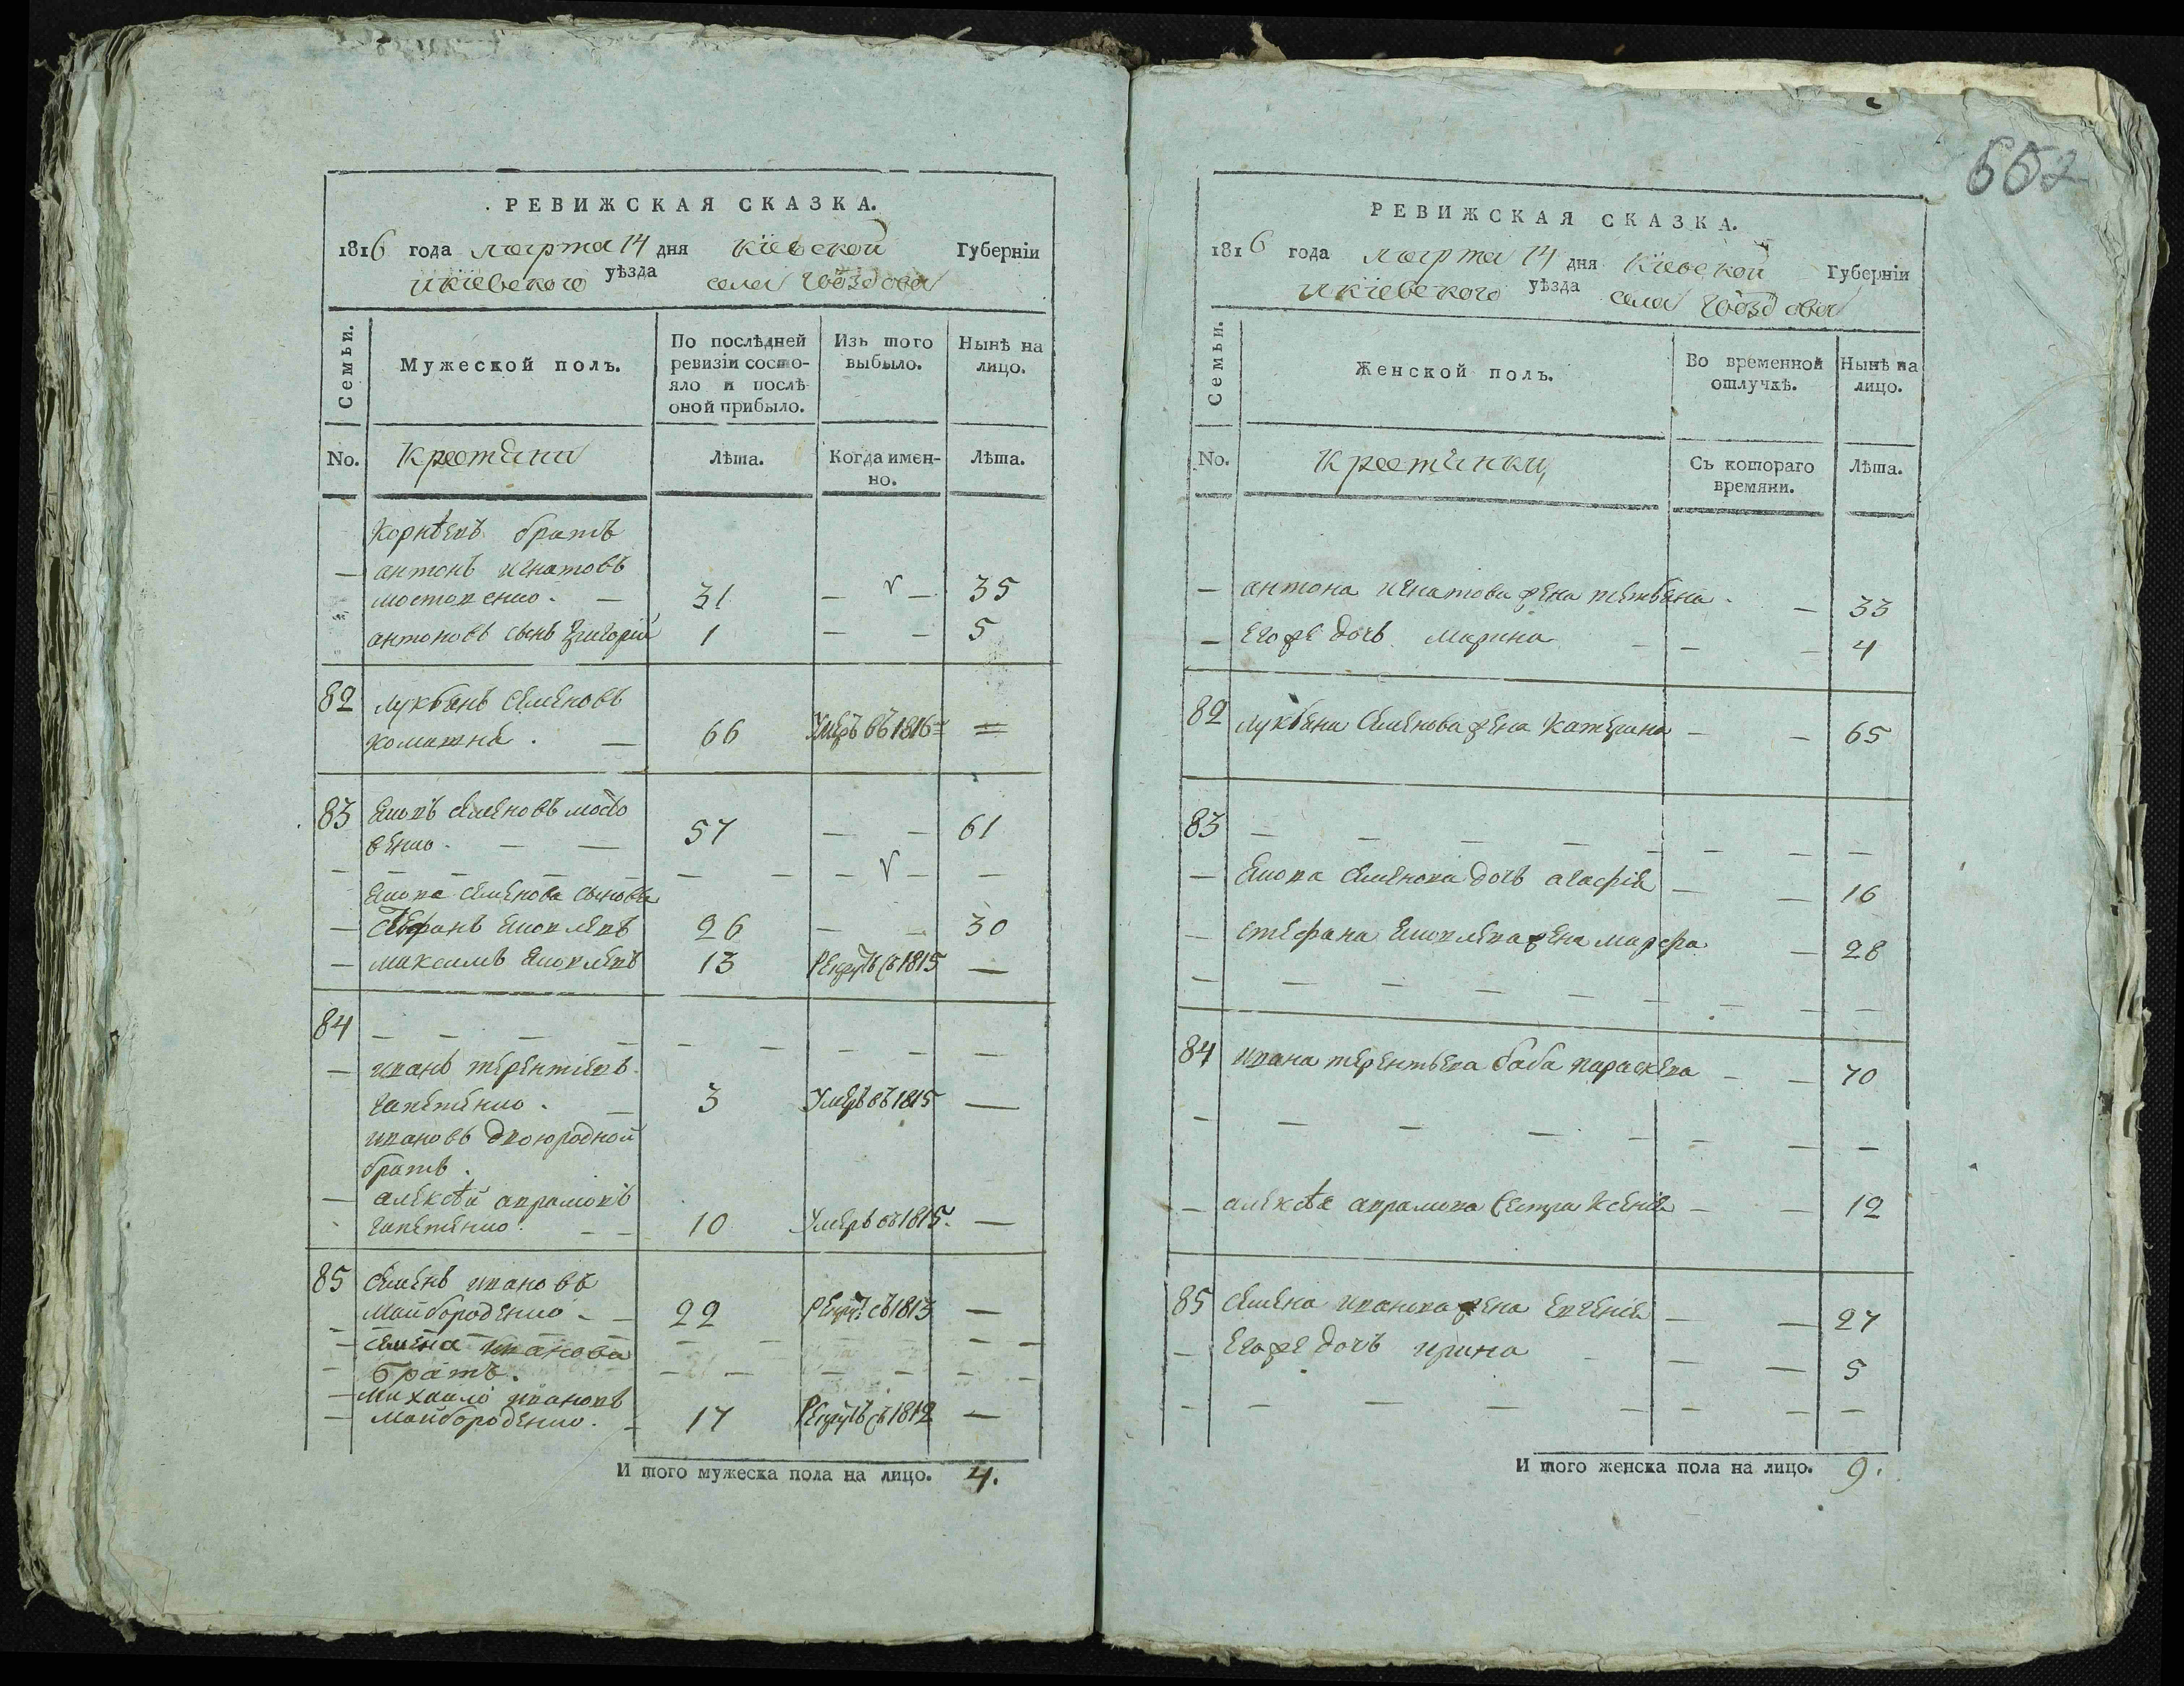 РЕВИЖСКАЯ СКАЗКА.
1816 года марта 14 дня Кіевской Губерніи
икіевского уѣзда села Гвоздова
Семьи.
Мужеской полъ.
По послѣдней ревизіи состояло и послѣ оной прибыло.
Изъ того выбыло.
Нынѣ на лицо.
No.
Крестяни
Лѣта.
Когда именно.
Лѣта.
братъ
— антонъ игнатовъ
— 31 — — 35
антоновъ сынъ григорій 1 — — 5
82 лукьянъ семеновъ
— 66 Умеръ въ 1816 =
83 семеновъ
57 — — 61
семенова сыновья
— стефанъ 26 — — 30
— максимъ 13 Рекрутъ съ 1815 —
84 — — — — — — — — —
— иванъ терентіевъ
— 3 Умеръ въ 1815 —
ивановъ двоюродной
братъ.
— алексѣй аврамовъ
— — 10 Умеръ въ 1815. —
85 семенъ ивановъ
Майбороденко — — 22 Рекрутъ съ 1813 —
— семена иванова
— братъ.
— михаило ивановъ
— майбороденко. — 17 Рекрутъ съ 1812 —
И того мужеска пола на лицо. 4.
552
РЕВИЖСКАЯ СКАЗКА.
1816 года марта 14 дня Кіевской Губерніи
икіевского уѣзда села Гвоздова
Семьи.
Женской полъ.
Во временной отлучкѣ.
Нынѣ на лицо.
No.
Крестянки
Съ котораго времяни.
Лѣта.
— антона игнатова жена татьяна — 33
— егоже дочь марина — — — 4
82 лукьяна семенова жена катерина — — 65
83 — — — — — — — —
— семенова дочь агафія — — 16
— стефана жена марфа — 28
— — — — — — — — —
84 ивана терентьева баба параскева — — 70
— — — — — — — —
— алексѣя аврамова сестра ксенія — — 12
85 семена иванова жена евгенія — — 27
— егоже дочь ирина — — — 5
— — — — — — — —
И того женска пола на лицо. 9.